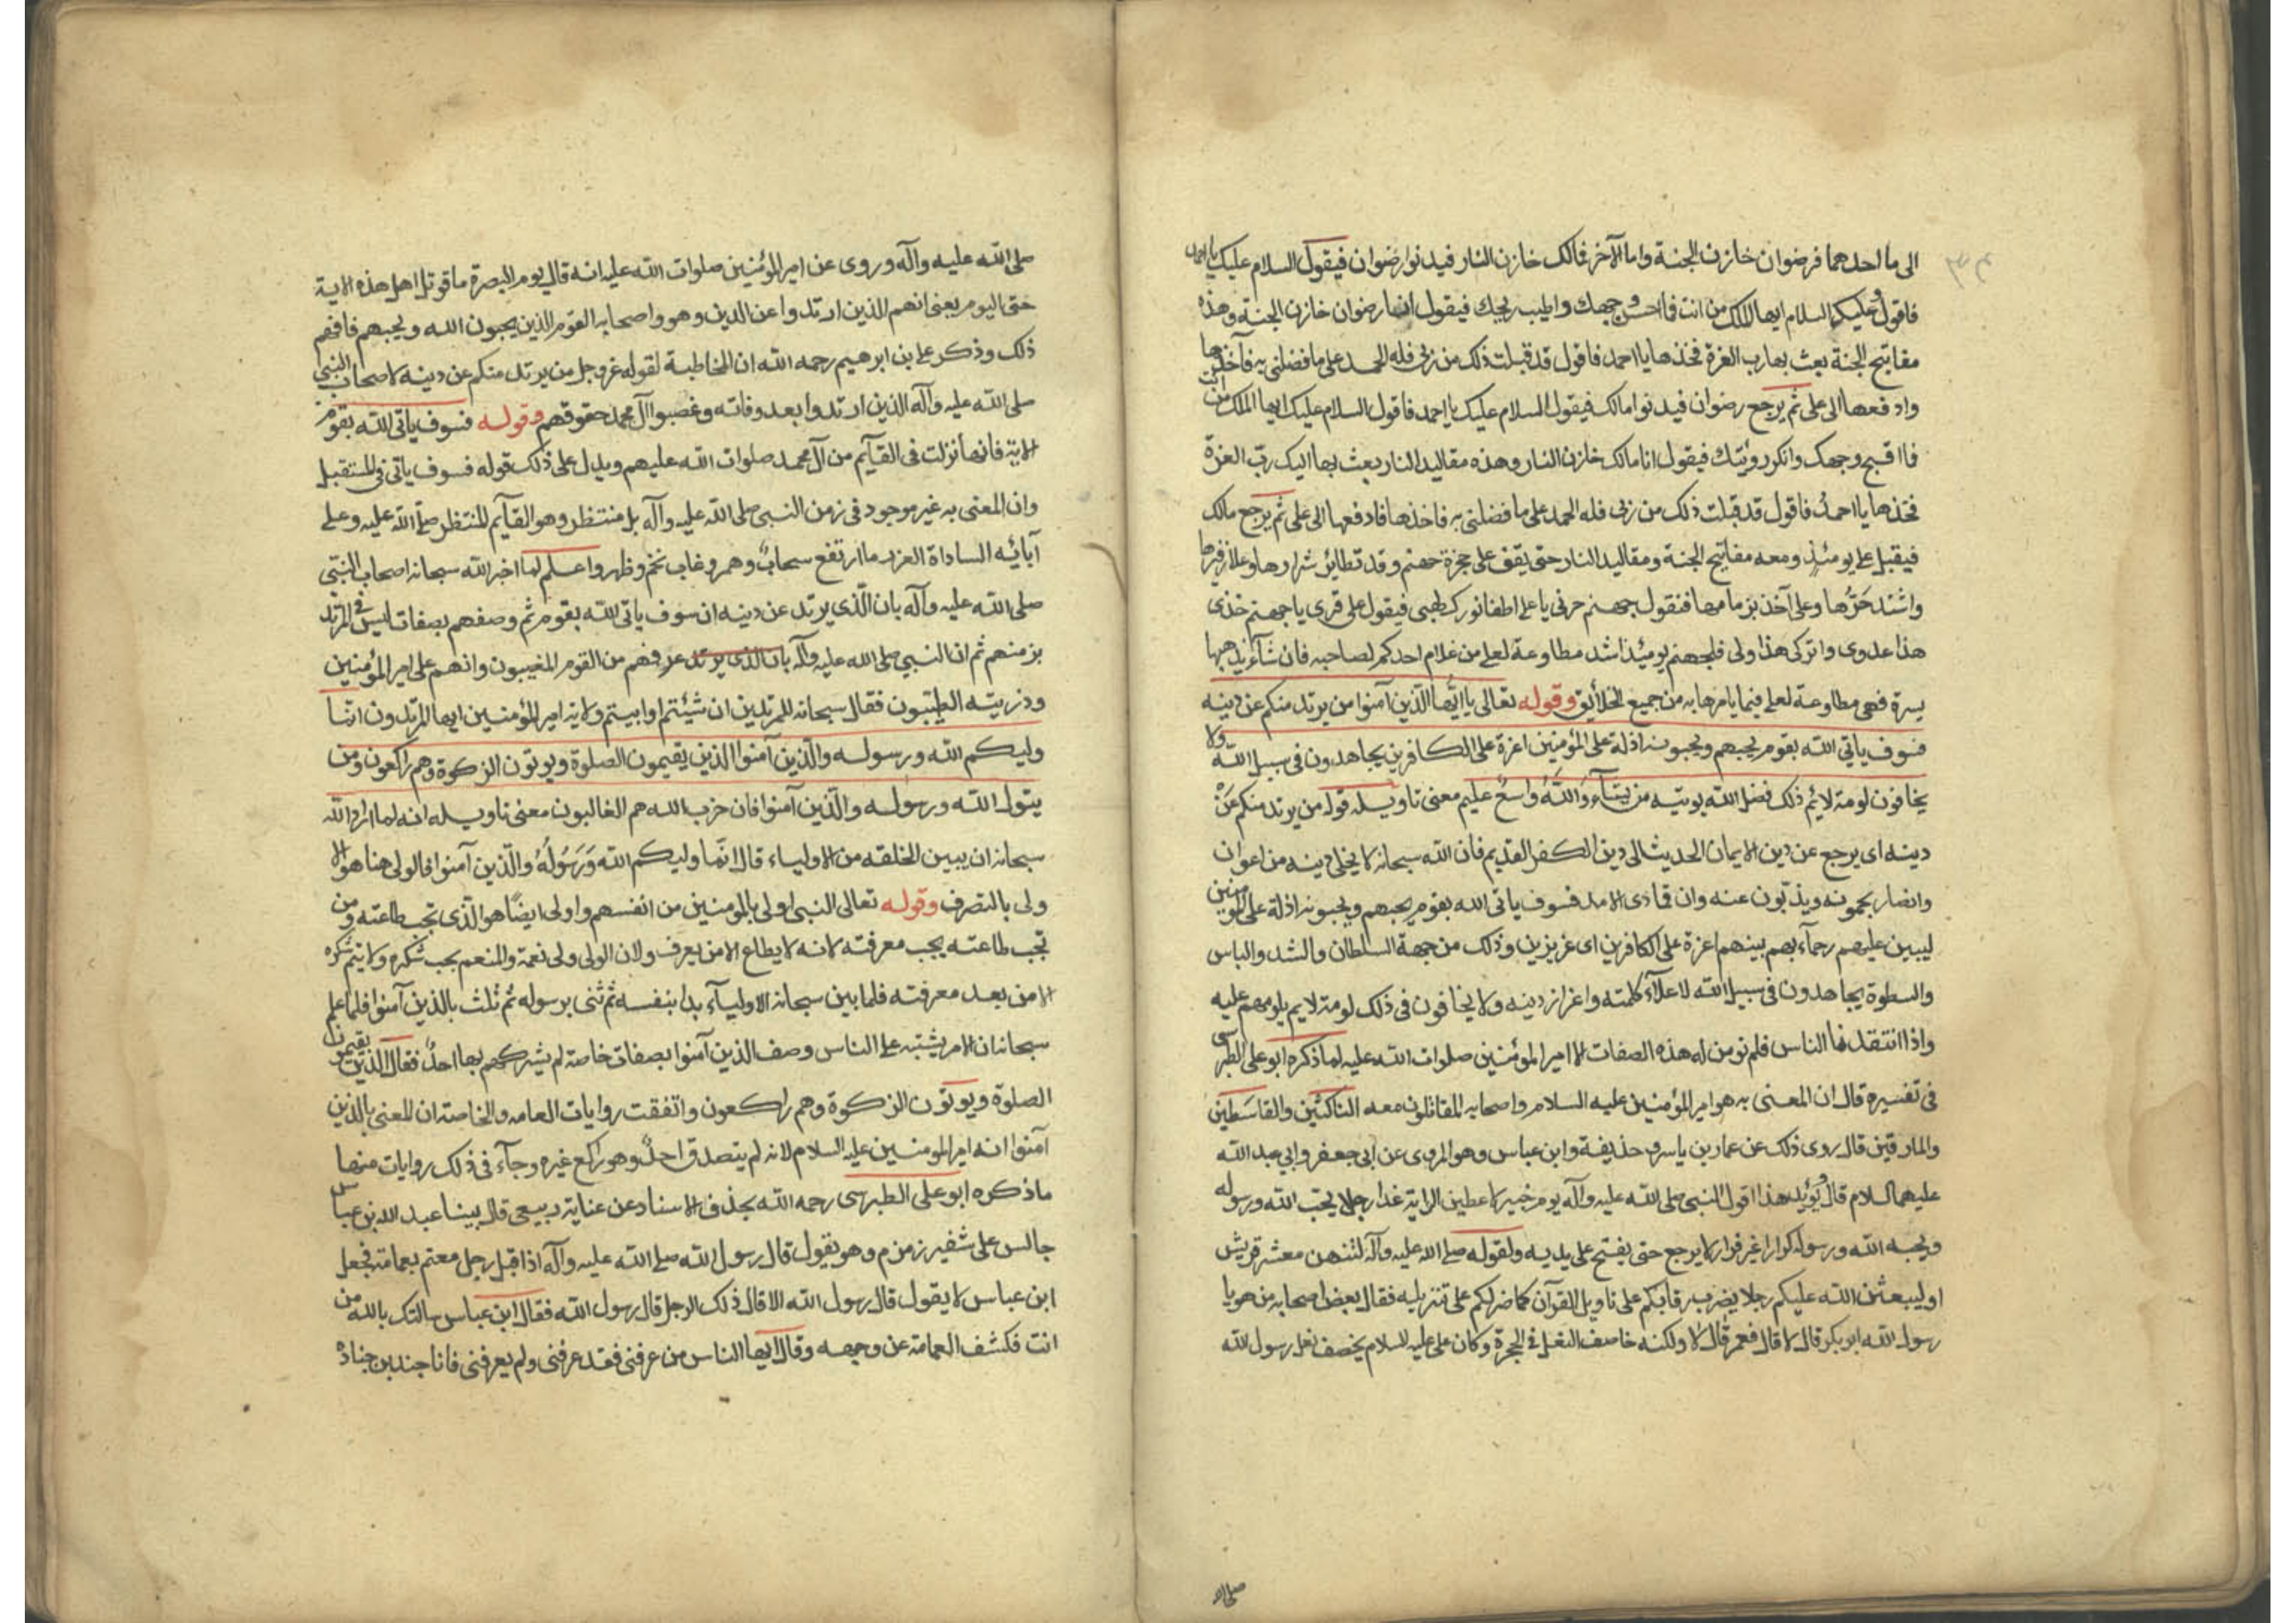 الى ما احدهما فرضوان خازن الجنة واما الآخر فمالك خازن النار فيدنوا رضوان فيقول السلام عليك يا احمد
فاقول وعليكم السلام ايها الملك من انت فما احسن وجهك واطيب ريحك فيقول انا رضوان خازن الجنة وهذه
مفاتيح الجنة بعث بها رب العزة فخذها يا احمد فاقول قد قبلت ذلك من ربى فله الحمد على ما فضلنى به فآخذها
وادفعها الى على ثم يرجع رضوان فيدنوا مالك فيقول السلام عليك يا احمد فاقول السلام عليك ايها الملك من انت
فما اقبح وجهك وانكر رؤيتك فيقول انا مالك خازن النار وهذه مقاليد النار بعث بها اليك ربّ العزة
فخذها يا احمد فاقول قد قبلت ذلك من ربى فله الحمد على ما فضلنى به فاخذها فادفعها الى على ثم يرجع مالك
فيقبل على يومئذ ومعه مفاتيح الجنة ومقاليد النار حتى يقف على حجزة جهنم وقد تطائر شرارها وعلا زفيرها
واشتد حَرُّها وعلى آخذ بزمامها فتقول جهنم جزنى يا على اطفا نورك لهبى فيقول على قرى يا جهنم خذى
هذا عدوى واتركى هذا ولى فلجهنم يومئذ اشد مطاوعة لعلى من غلام احدكم لصاحبه فان شآء يذهبها
يسرة فهى مطاوعة لعلى فيما يامرها به من جميع الخلائق وقوله تعالى يا ايّها الّذين آمنوا من يرتد منكم عن دينه
فسوف ياتى الله بقوم يحبهم ويحبونه اذلة على المؤمنين اعزة على الكافرين يجاهدون فى سبيل الله ولا
يخافون لومة لائم ذلك فضل الله يوتيه من يشآء وَاللّهُ وَاسعٌ عليم معنى تاويله قوله من يرتد منكم عَنْ
دينه اى يرجع عن دين الايمان الحديث الى دين الكفر القديم فان الله سبحانه لا يخلى دينه من اعوان
وانصار يحمونه ويذبّون عنه وان تمادى الامد فسوف ياتى الله بقوم يحبهم ويحبونه اذلة على المؤمنين
ليبين عليهم رحمآء بهم بينهم اعزة على الكافرين اى عزيزين وذلك من جهة السلطان والشد والباس
والسطوة يجاهدون فى سبيل الله لاعلآء كلمته واعزاز دينه ولا يخافون فى ذلك لومة لايم يلومهم عليه
واذا انتقد الناس فلم نر من له هذه الصفات الا امير المؤمنين صلوات الله عليه لما ذكره ابو على الطبرسى
فى تفسيره قال ان المعنى به هو امير المؤمنين عليه السلام واصحابه المقاتلون معه الناكثين والقاسطين
والمارقين قال روى ذلك عن عمار بن ياسر وحذيفة وابن عباس وهو المروى عن ابى جعفر وابى عبد الله
عليهما السلام قال ويُؤيد هذا قول النبى صلى الله عليه وآله يوم خيبر لاعطين الراية غدا رجلا يحبّ الله ورسوله
ويحبه الله ورسوله كرارا غير فرار لا يرجع حتى يفتح على يديه ولقوله صلى الله عليه وآله لتنتهن معشر قريش
او ليبعثن الله عليكم رجلا يضرب رقابكم على تاويل القرآن كما ضربكم على تنزيله فقال بعض اصحابه من هو يا
رسول الله ابو بكر قال لا قال فعمر قال لا ولكنه خاصف النعل فى الحجرة وكان على عليه السلام يخصف نعل رسول الله
صلى الله
صلى الله عليه وآله وروى عن امير المؤمنين صلوات الله عليه انه قال يوم البصرة ما قوتل اهل هذه الاية
حتى اليوم يعنى انهم الذين ارتدوا عن الدين وهو واصحابه القوم الذين يحبون الله ويحبهم فافهم
ذلك وذكر على بن ابرهيم رحمه الله ان المخاطبة لقوله عز وجل من يرتد منكم عن دينه لاصحاب النبى
صلى الله عليه وآله الذين ارتدوا بعد وفاته وغصبوا آل محمد حقوقهم وقوله فسوف ياتى الله بقوم
الاية فانها نزلت فى القآئم من آل محمد صلوات الله عليهم ويدل على ذلك قوله فسوف ياتى فى المستقبل
وان المعنى به غير موجود فى زمن النبى صلى الله عليه وآله بل منتظر وهو القآئم المنتظر صلى الله عليه وعلى
آبائه الساداة الغرر ما ارتفع سحابٌ وهمر وغاب نجم وظهر واعلم لما اخبر الله سبحانه اصحاب النبى
صلى الله عليه وآله بان الّذى يرتد عن دينه ان سوف ياتى الله بقوم ثم وصفهم بصفات ليس فى المرتد
بن منهم ثم ان النبى صلى الله عليه وآله بان الذى يرتد عرفهم من القوم المغيبون وانهم على امير المؤمنين
وذريته الطيّبون فقال سبحانه للمرتدين ان شيئتم او ابيتم ولاية امير المؤمنين ايها المرتدون انما
وليكم الله ورسوله والّذين آمنوا الذين يقيمون الصلوة ويوتون الزكوة وهم راكعون ومن
يتول الله ورسوله والّذين آمنوا فان حزب الله هم الغالبون معنى تاويله انه لما اراد الله
سبحانه ان يبين لخلقه من الاولياء قال انّما وليكم الله وَرَسُولُهُ والّذين آمنوا فالولى هنا هو الا
ولى بالتصرف وقوله تعالى النبى اولى بالمومنين من انفسهم واولى ايضًا هو الّذى تجب طاعته ومن
تجب طاعته يجب معرفته لانه لا يطاع الا من يعرف ولان الولى ولى نعمة والمنعم يجب شكره ولا يتم شكره
الا من بعد معرفته فلما بين سبحانه الاوليآء بدا بنفسه ثم ثنى برسوله ثم ثلث بالذين آمنوا فلما علم
سبحانه ان الامر يشتبه على الناس وصف الذين آمنوا بصفات خاصة لم يشركهم بها احدٌ فقال الذين يقيمون
الصلوة ويوتون الزكوة وهم راكعون واتفقت روايات العامه والخاصة ان المعنى بالذين
آمنوا انه امير المومنين عليه السلام لانه لم يتصدق احدٌ وهو راكع غيره وجآء فى ذلك روايات منها
ما ذكره ابو على الطبرسى رحمه الله بحذف الاسناد عن عناية ربيعى قال بينا عبد الله بن عباس
جالس على شفير زمزم وهو يقول قال رسول الله صلى الله عليه وآله اذ اقبل رجل معتم بعمامة فجعل
ابن عباس لا يقول قال رسول الله الا قال ذلك الرجل قال رسول الله فقال ابن عباس سالتك بالله من
انت فكشف العمامة عن وجهه وقال ايها الناس من عرفنى فقد عرفنى ولم يعرفنى فانا جندب بن جنادة